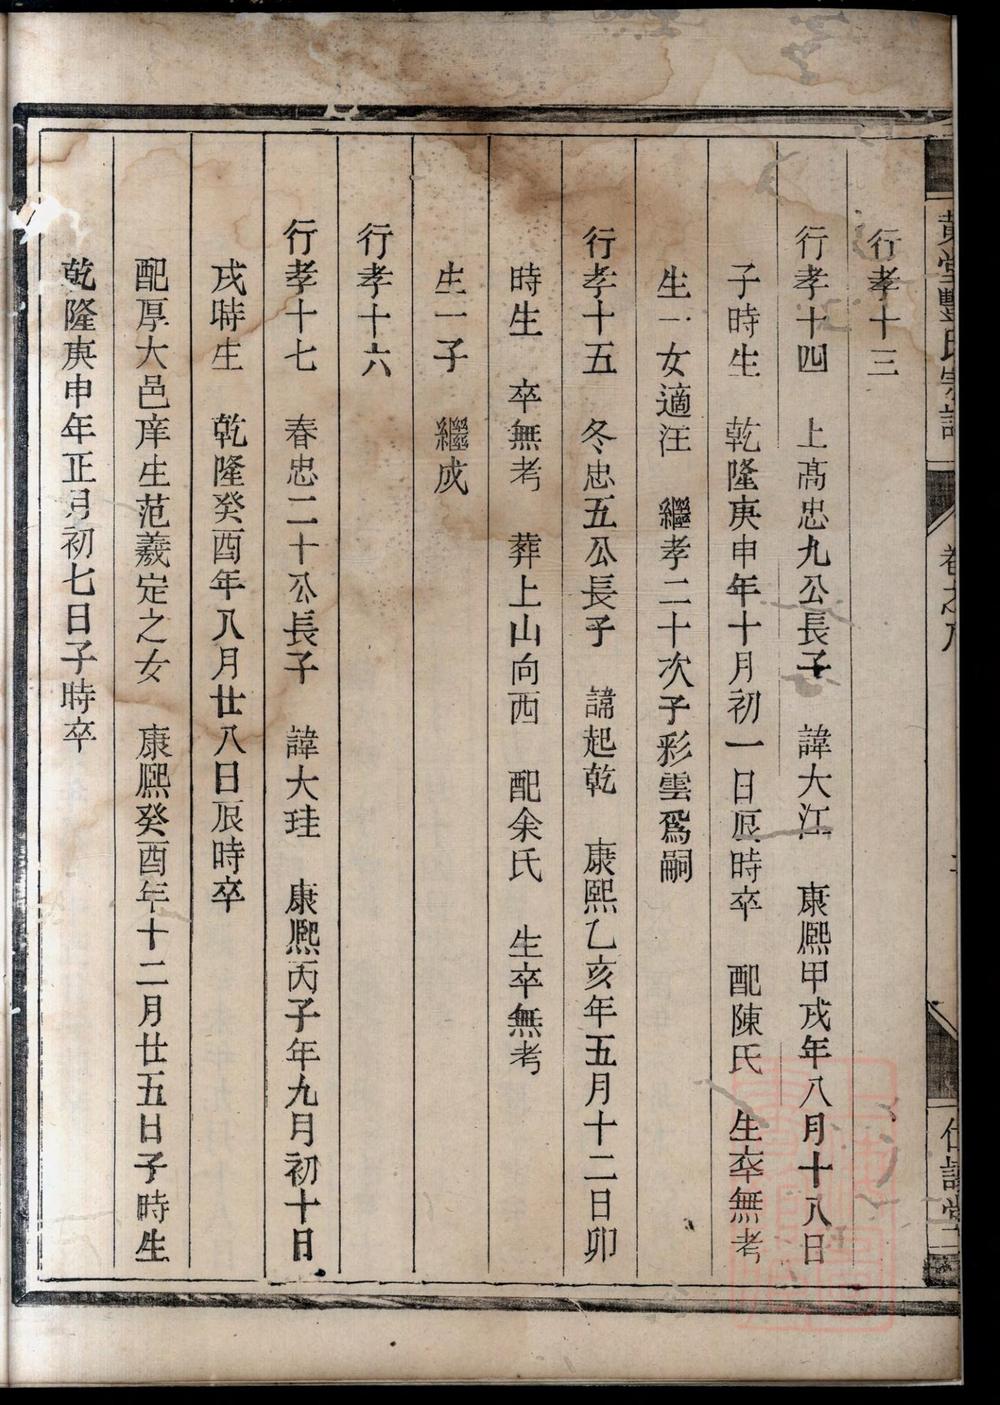 黃堂豐氏宗譜 卷之八
行孝十三
行孝十四 上高忠九公長子 諱大江 康熙甲戌年八月十八日
子時生 乾隆庚申年十月初一日辰時卒 配陳氏 生卒無考
生一女適汪 繼孝二十次子彩雲爲嗣
行孝十五 冬忠五公長子 諱起乾 康熙乙亥年五月十二日卯
時生 卒無考 葬上山向西 配余氏 生卒無考
生一子 繼成
行孝十六
行孝十七 春忠二十公長子 諱大珪 康熙丙子年九月初十日
戌時生 乾隆癸酉年八月廿八日辰時卒
配厚大邑庠生范羲定之女 康熙癸酉年十二月廿五日子時生
乾隆庚申年正月初七日子時卒